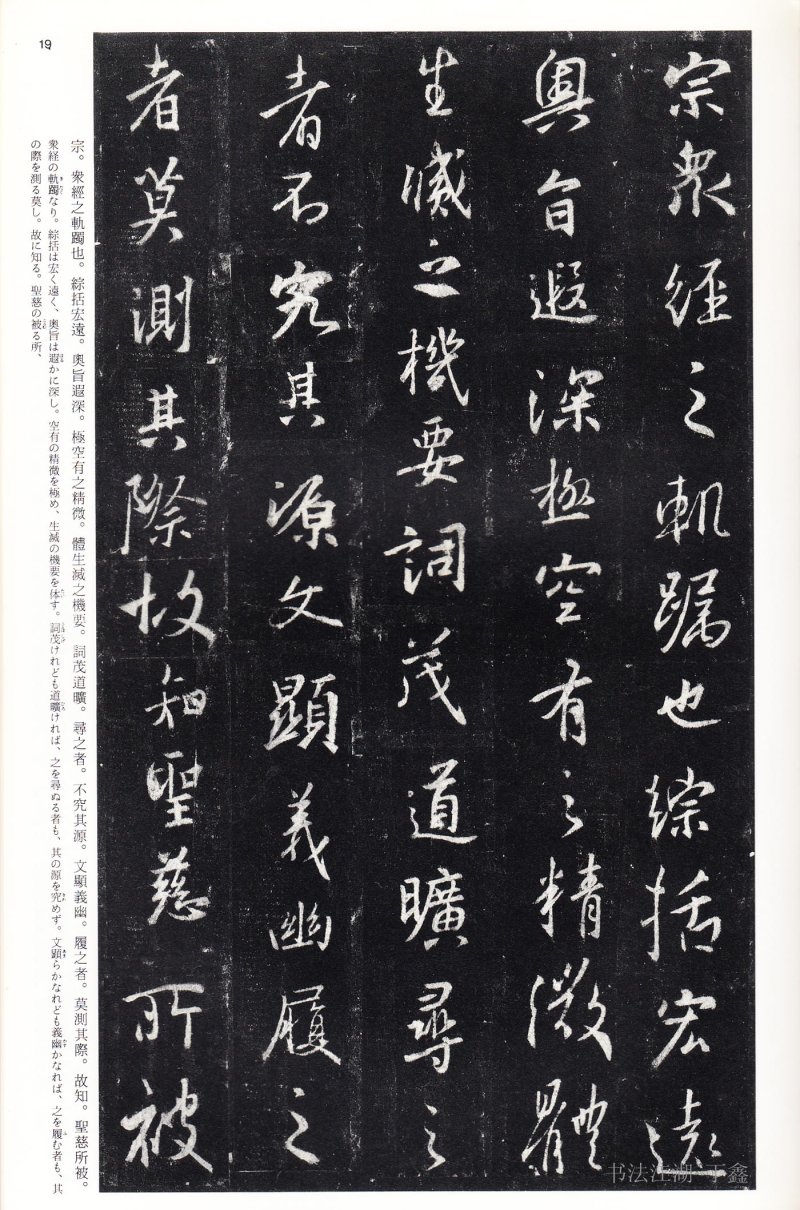 宗衆經之軌躅也綜括宏遠
奧旨遐深極空有之精微體
生滅之機要詞茂道曠尋之
者不究其源文顯義幽履之
者莫測其際故知聖慈所被
宗。衆經之軌躅也。綜括宏遠。奥旨遐深。極空有之精微。體生滅之機要。詞茂道曠。尋之者。不究其源。文顯義幽。履之者。莫測其際。故知。聖慈所被。
衆経の軌躅なり。綜括は宏く遠く、奥旨は遐かに深し。空有の精微を極め、生滅の機要を体す。詞茂けれども道曠ければ、之を尋ぬる者も、其の源を究めず。文顕らかなれども義幽かなれば、之を履む者も、其
の際を測る莫し。故に知る。聖慈の被る所、
19
书法江湖 于鑫